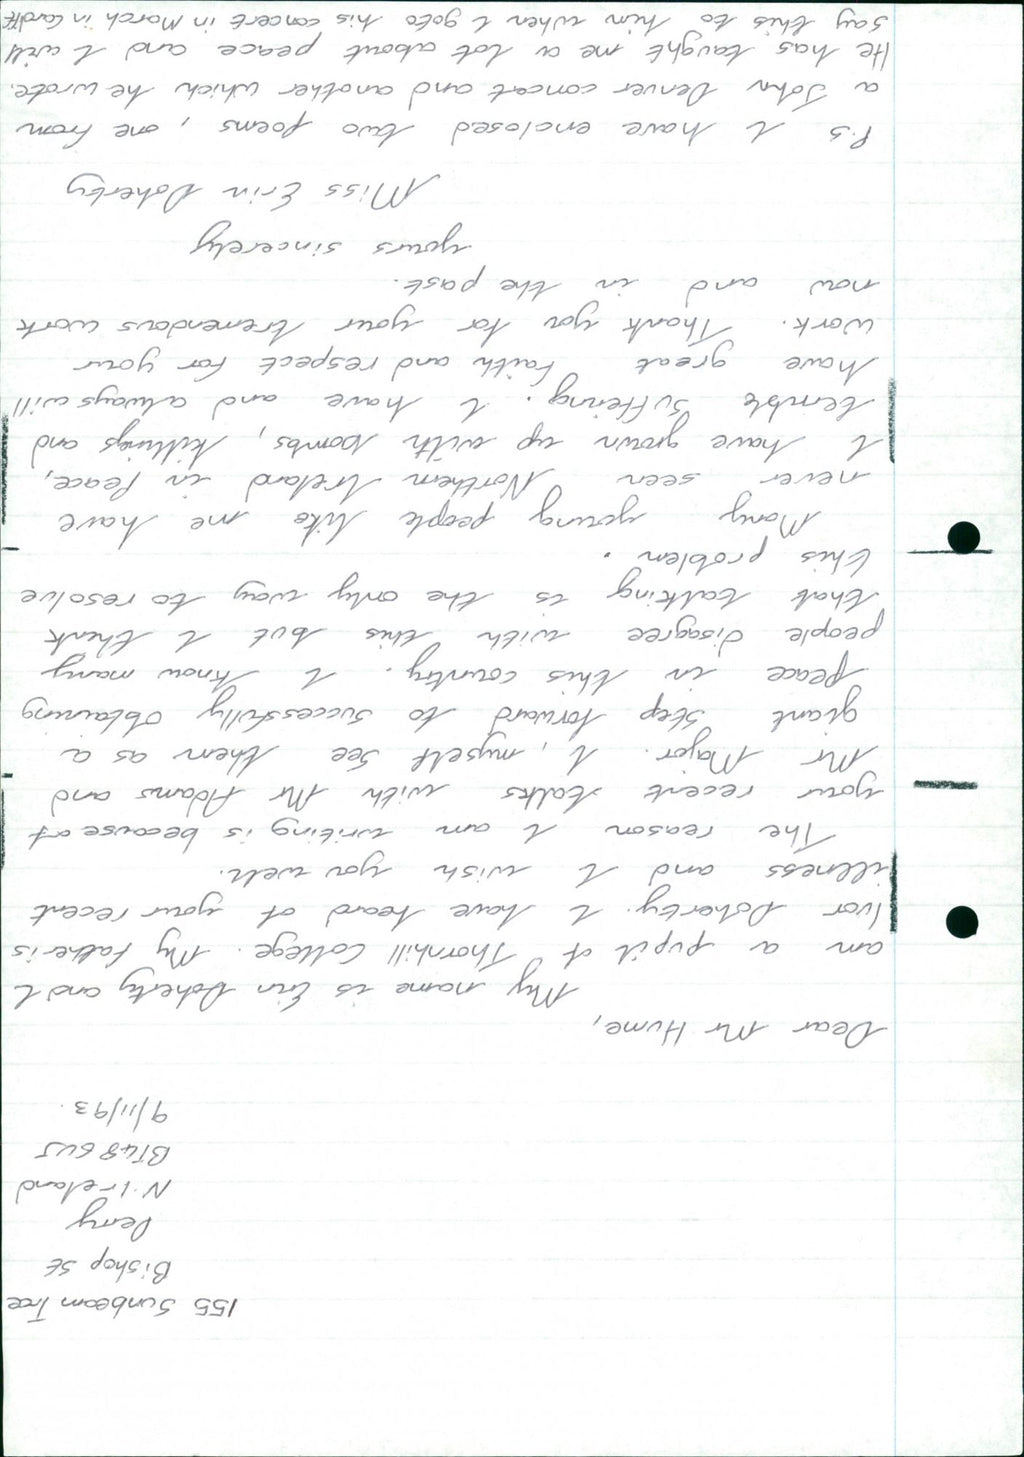 155 Sunbeam Tce
Bishop St
Derry
N. Ireland
BT48 6UJ
9/11/93.
Dear Mr Hume,
My name is Erin Doherty and I
am a pupil of Thornhill College. My father is
Ivor Doherty. I have heard of your recent
illness and I wish you well.
The reason I am writing is because of
your recent talks with Mr Adams and
Mr Major. I, myself see them as a
giant step forward to successfully obtaining
peace in this country. I know many
people disagree with this but I think
that talking is the only way to resolve
this problem.
Many young people like me have
never seen Northern Ireland in peace,
I have grown up with bombs, killings and
terrible suffering. I have and always will
have great faith and respect for your
work. Thank you for your tremendous work
now and in the past.
yours sincerely
Miss Erin Doherty
P.S I have enclosed two poems, one from
a John Denver concert and another which he wrote.
He has taught me a lot about peace and I will
say this to him when I go to his concert in March in Cardiff